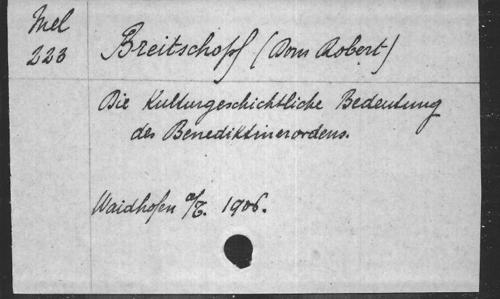 Mel
223
Breitschopf (Dom Robert)
Die Kulturgeschichtliche Bedeutung
des Benediktinerordens.
Waidhofen a/T. 1906.